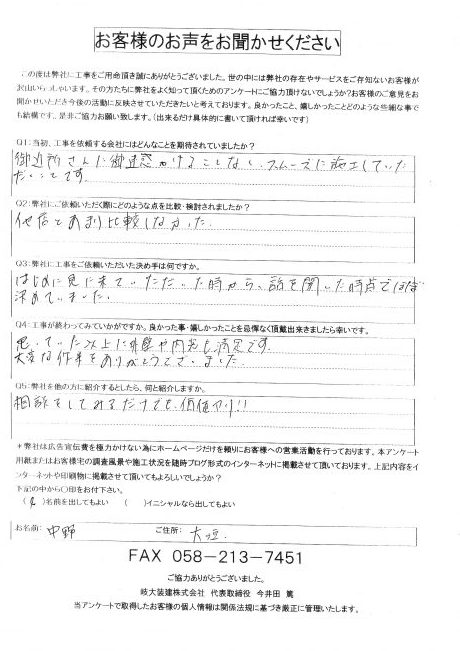 お客様のお声をお聞かせください
この度は弊社に工事をご用命頂き誠にありがとうございました。世の中には弊社の存在やサービスをご存知ないお客様が
沢山いらっしゃいます。その方たちに弊社をよく知って頂くためのアンケートにご協力頂けないでしょうか?お客様のご意見をお
聞かせいただき今後の活動に反映させていただきたいと考えております。良かったこと、嬉しかったことどのような些細な事で
も結構です、是非ご協力お願い致します。(出来るだけ具体的に書いて頂ければ幸いです)
Q1:当初、工事を依頼する会社にはどんなことを期待されていましたか?
御近所さんに御迷惑かけることなく、スムーズに施工していた
だくことです。
Q2:弊社にご依頼いただく際にどのような点を比較・検討されましたか?
他店とあまり比較しなかった
Q3:弊社に工事をご依頼いただいた決め手は何ですか。
はじめに見に来ていただいた時から、話を聞いた時点でほぼ
決めていました。
Q4:工事が終わってみていかがですか。良かった事・嬉しかったことを忌憚なく頂戴出来きましたら幸いです。
思っていた以上に外壁や内装も満足です。
大変な作業をありがとうございました。
Q5:弊社を他の方に紹介するとしたら、何と紹介しますか。
相談をしてみるだけでも、価値アリ!!
*弊社は広告宣伝費を極力かけない為にホームページだけを頼りにお客様への営業活動を行っております。本アンケート
用紙またはお客様宅の調査風景や施工状況を随時ブログ形式のインターネットに掲載させて頂いております。上記内容をイ
ンターネットや印刷物に掲載させて頂いてもよろしいでしょうか?
下記の中から○印をお付下さい。
( )名前を出してもよい ( )イニシャルなら出してもよい
お名前: 中野 ご住所: 大垣
FAX 058-213-7451
ご協力ありがとうございました。
岐大装建株式会社 代表取締役 今井田 篤
当アンケートで取得したお客様の個人情報は関係法規に基づき厳正に管理いたします。